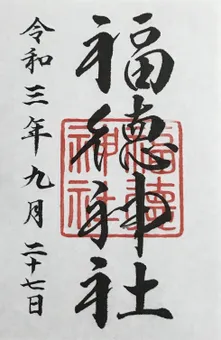 福徳神社
福徳
神社
令和三年九月二十七日